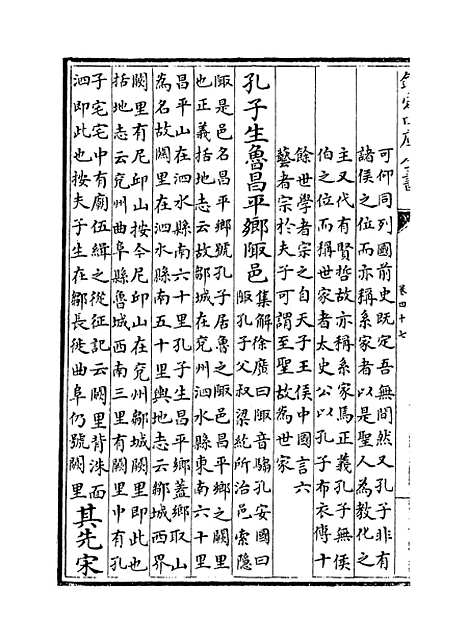 欽定四庫全書
卷四十七
可仰同列國前史既定吾無間然又孔子非有
諸侯之位而亦稱系家者以是聖人為教化之
主又代有賢哲故亦稱系家焉正義孔子無侯
伯之位而稱世家者太史公以孔子布衣傳十
餘世學者宗之自天子王侯中國言六
藝者宗於夫子可謂至聖故為世家
孔子生魯昌平鄉陬邑
集解徐廣曰陬音騶孔安國曰
陬孔子父叔梁紇所治邑索隱
陬是邑名昌平鄉號孔子居魯之陬邑昌平鄉之闕里
也正義括地志云故鄒城在兗州泗水縣東南六十里
昌平山在泗水縣南六十里孔子生昌平鄉蓋鄉取山
為名故闕里在泗水縣南五十里輿地志云鄒城西界
闕里有尼邱山按今尼邱山在兗州鄒城闕里即此也
括地志云兗州曲阜縣魯城西南三里有闕里中有孔
子宅宅中有廟伍緝之從征記云闕里背洙面
泗即此也按夫子生在鄒長徙曲阜仍號闕里
其先宋